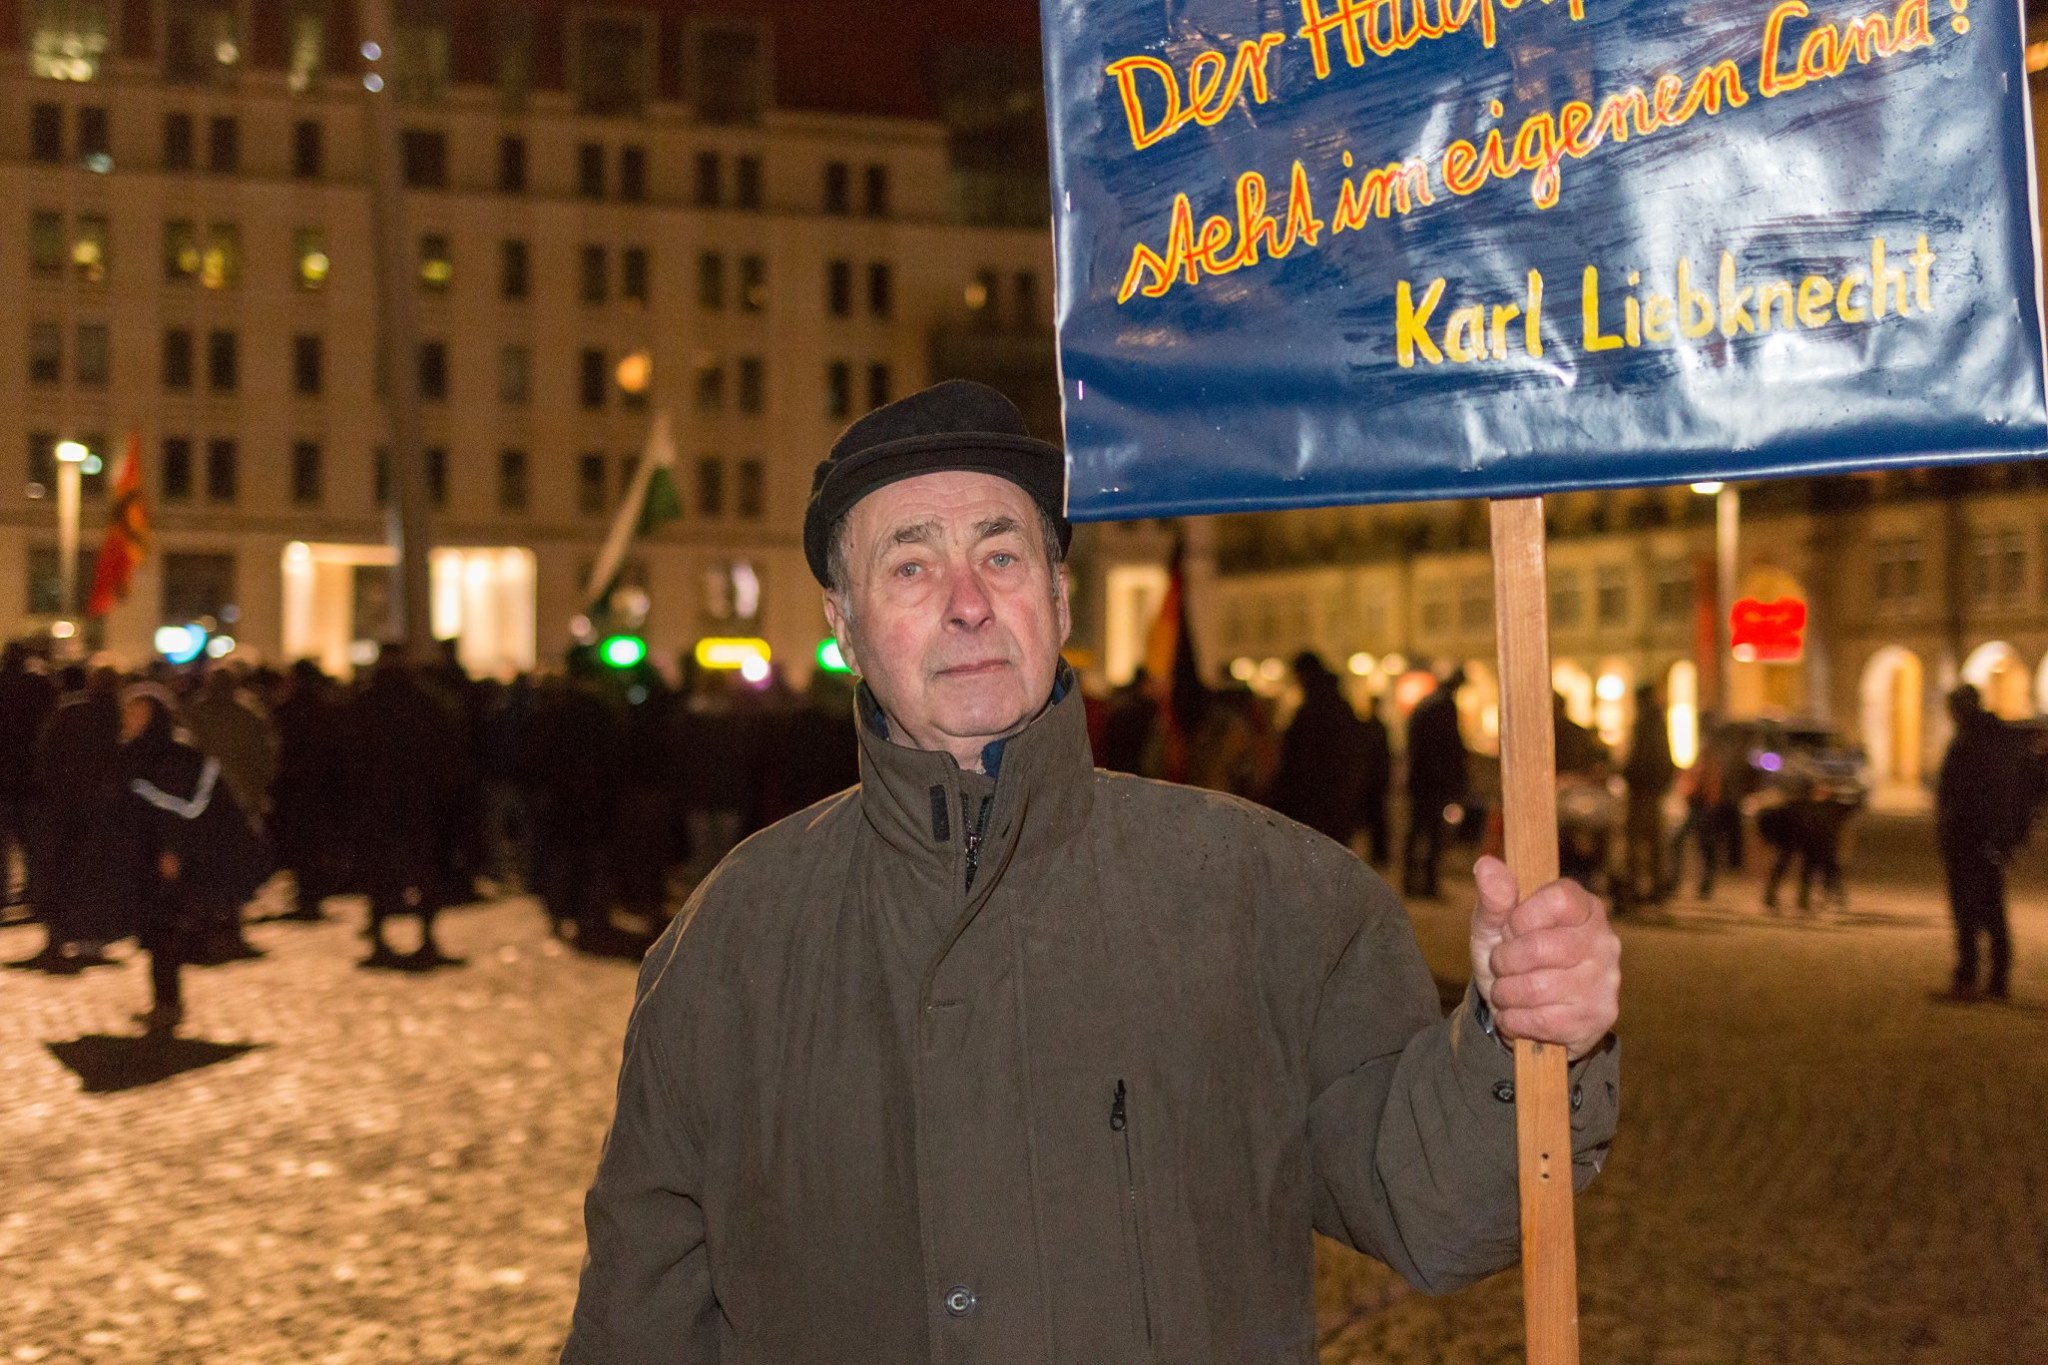 Der
steht im eigenen Land!
Karl Liebknecht